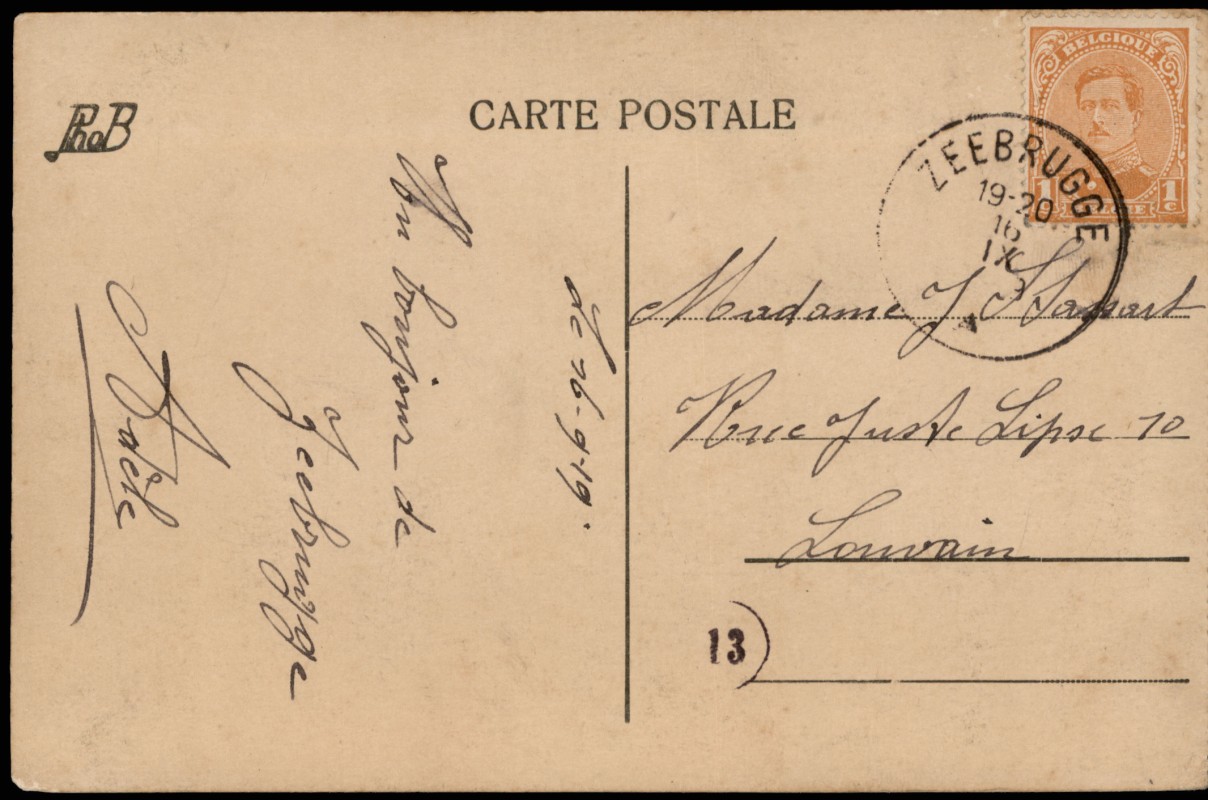 PhoB
CARTE POSTALE
BELGIQUE
1 c 1 c
BELGIE
ZEEBRUGGE
19-20
16
IX
9
A
le 16-9-19.
Un bonjour de
Zeebrugge
Adèle
Madame J Stassart
Rue Juste Lipse 10
Louvain
13